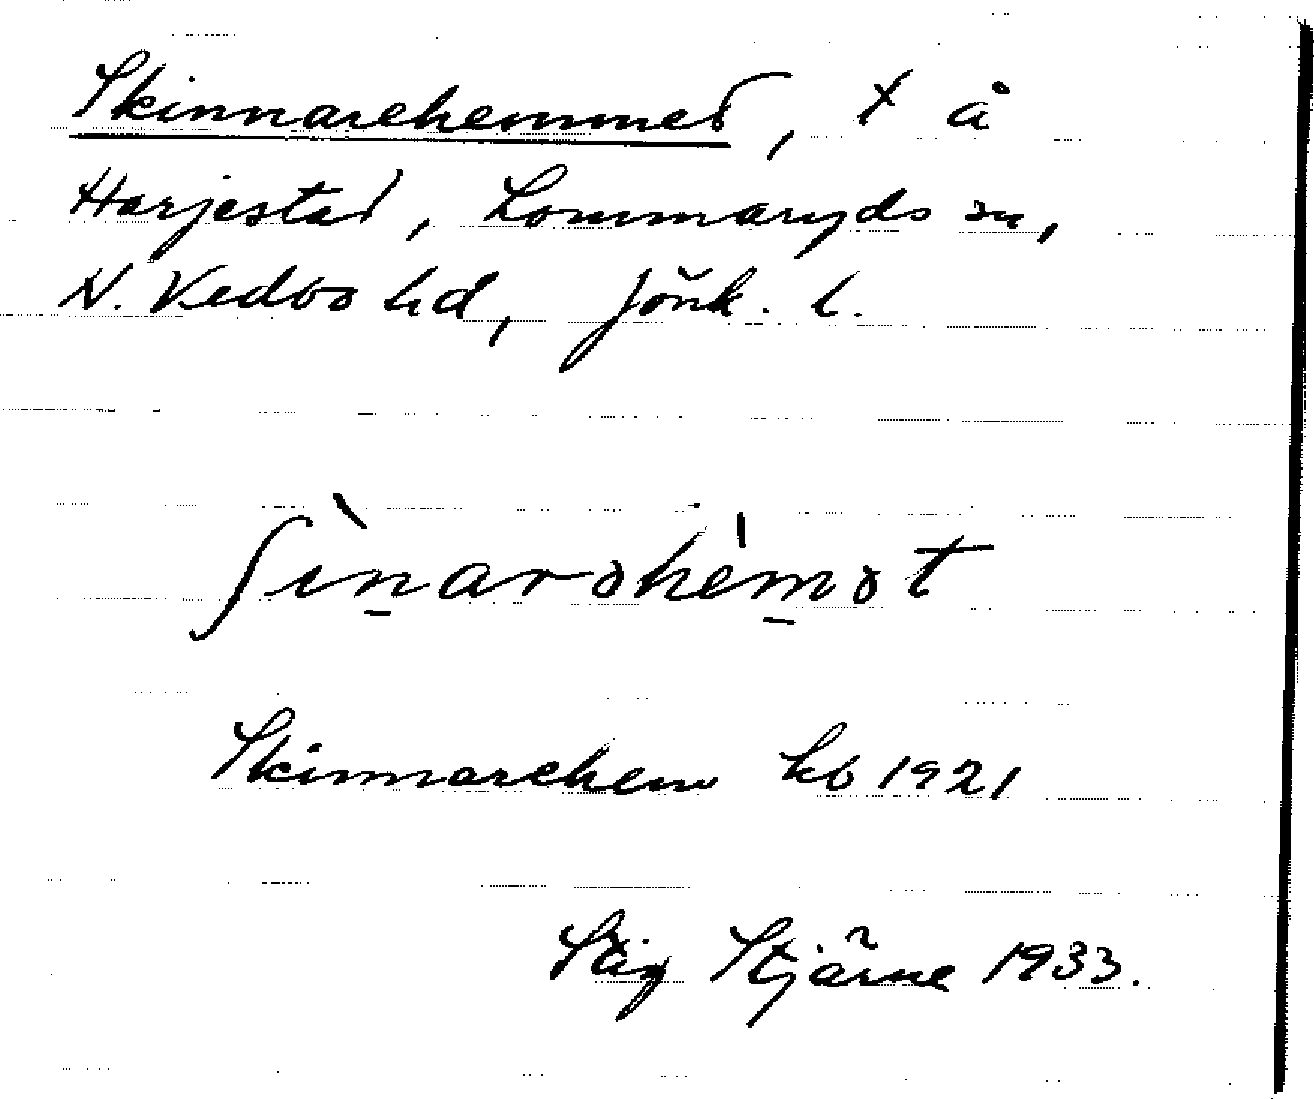 Skinnarehemmed, x å
Harjestad, Lommaryds sn,
N. Vedbo hd, Jönk. l.
ʃìṉarəhèm̱ət
Skinnarehem kb 1921
Stig Stjärne 1933.